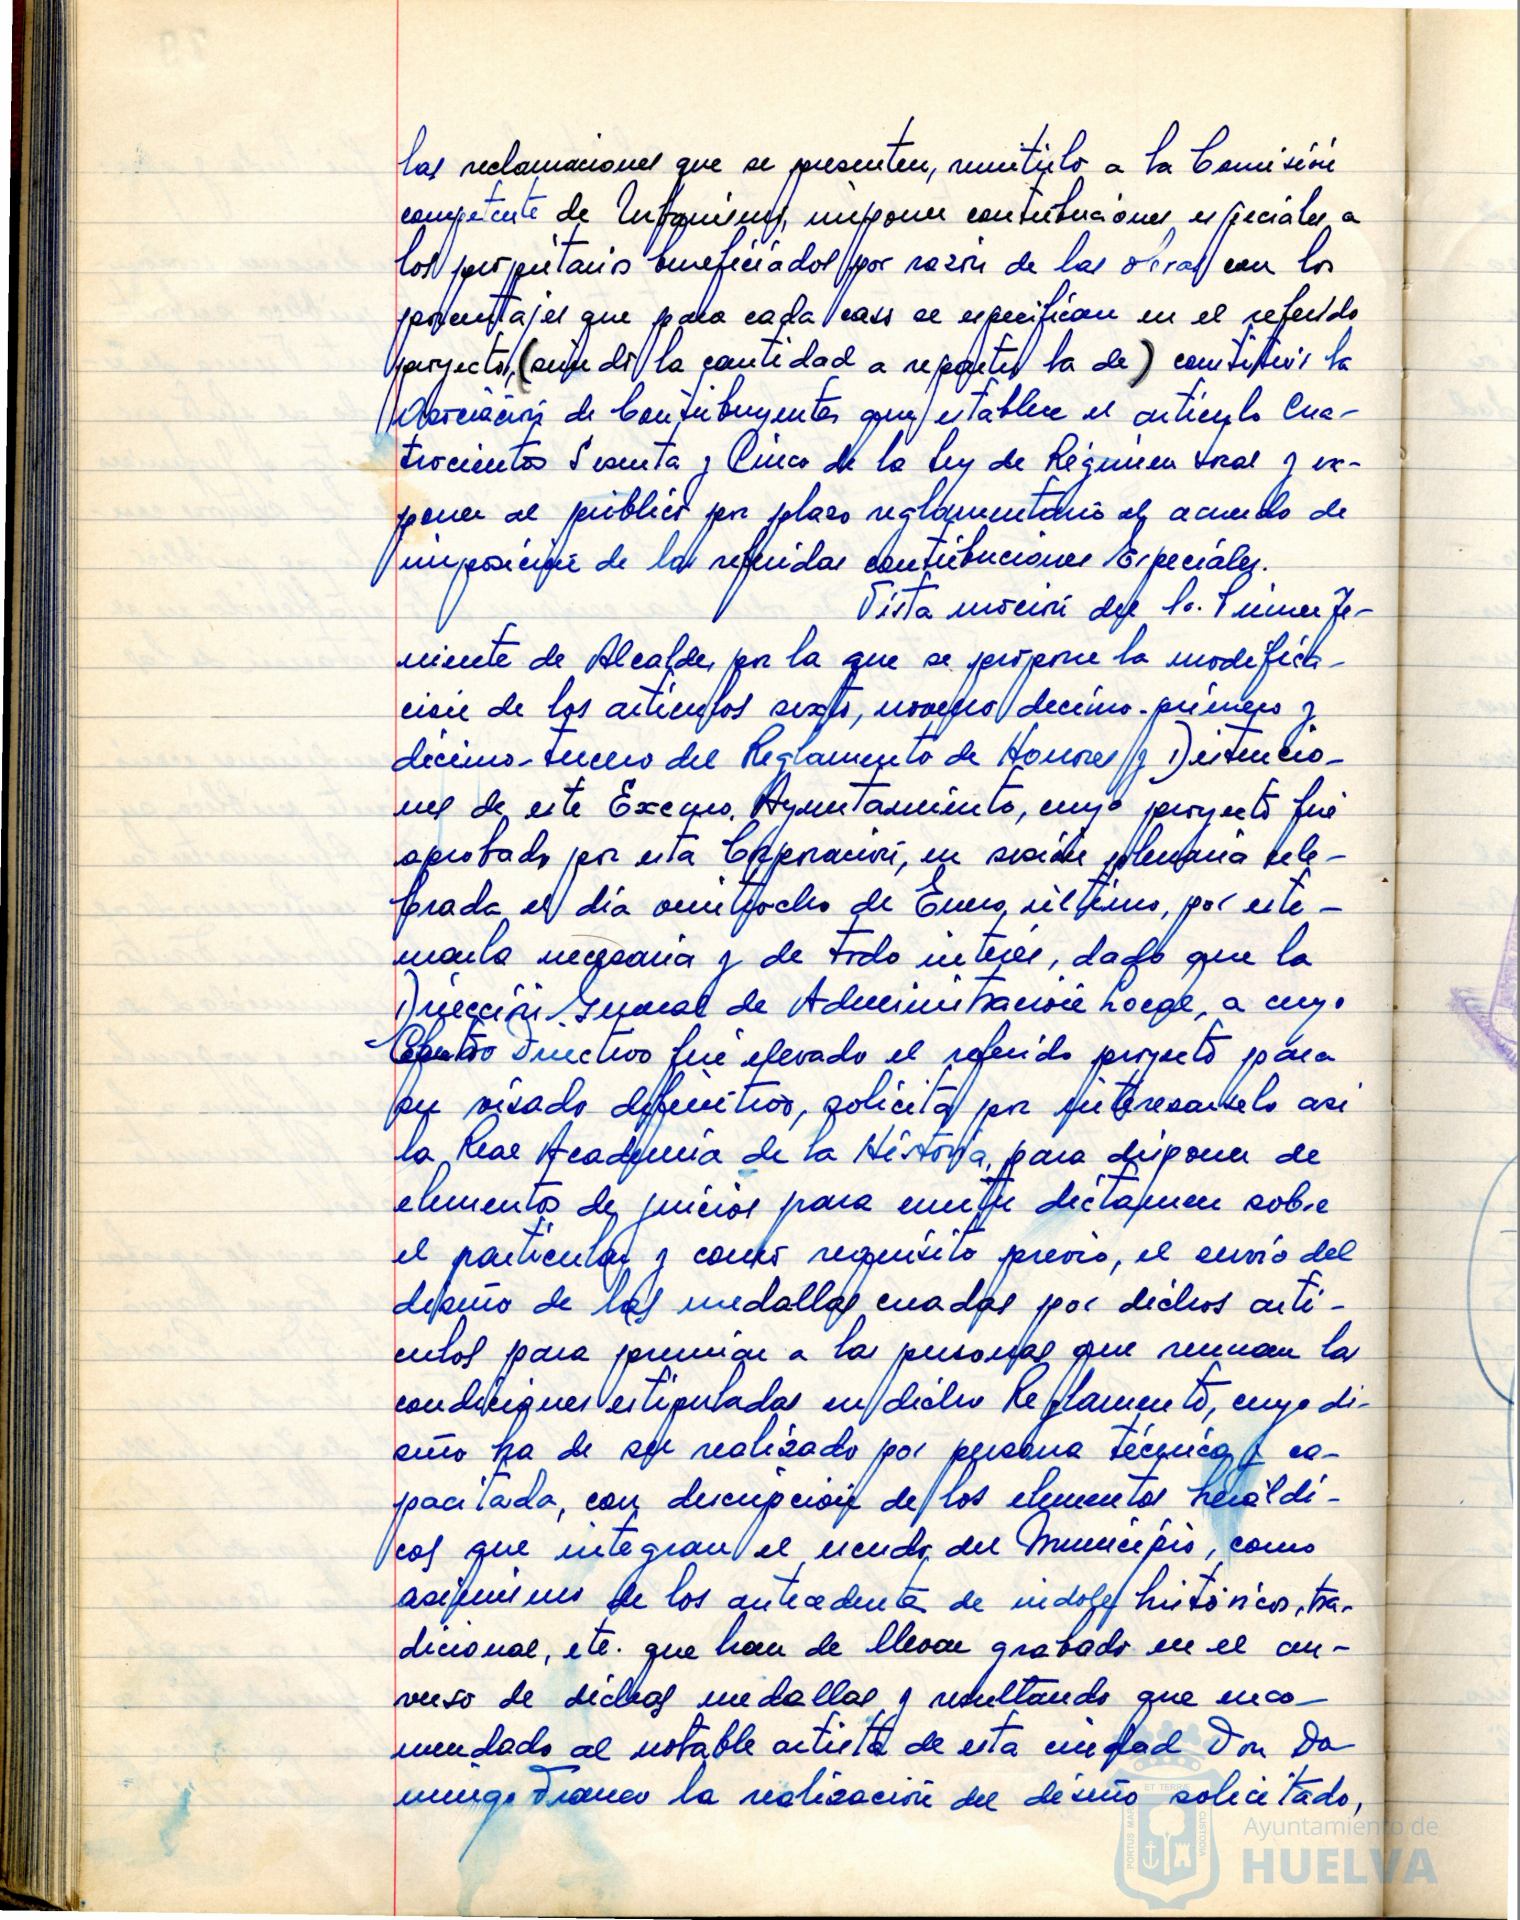 las reclamaciones que se presenten, remitirlo a la Comisión
competente de Urbanismo, imponer contribuciones especiales a
los propietarios beneficiados por razón de las obras con los
porcentajes que para cada caso se especifican en el referido
proyecto, (siendo la cantidad a repartir la de) constituir la
Asociación de Contribuyentes que establece el artículo Cua-
trocientos Sesenta y Cinco de la Ley de Régimen Local y ex-
poner al público por plazo reglamentario el acuerdo de
imposición de las referidas contribuciones Especiales.
Vista moción del Sr. Primer Te-
niente de Alcalde, por la que se propone la modifica-
ción de los artículos sexto, noveno decimo-primero y
décimo-tercero del Reglamento de Honores y Distincio-
nes de este Excmo. Ayuntamiento, cuyo proyecto fué
aprobado por esta Corporación, en sesión plenaria cele-
brada el día veintiocho de Enero último, por esti-
marla necesaria y de todo interés, dado que la
Dirección General de Administración Local, a cuyo
Centro Directivo fué elevado el referido proyecto para
su visado definitivo, solicita por interesarselo asi
la Real Academia de la Historia, para disponer de
elementos de juicios para emitir dictamen sobre
el particular y como requisito previo, el envío del
diseño de las medallas creadas por dichos arti-
culos para premiar a las personas que reunan las
condiciones estipuladas en dicho Reglamento, cuyo di-
seño ha de ser realizado por persona técnica y ca-
pacitada, con descripción de los elementos heráldi-
cos que integran el escudo del Municipio, como
asimismo de los antecedentes de indole histórico, tra-
dicional, etc. que han de llevar grabado en el an-
verso de dichas medallas y resultando que enco-
mendado al notable artista de esta ciudad Don Do
mingo Franco la realización del diseño solicitado,
ET TERRAE
PORTUS MARIS
CUSTODIA
Ayuntamiento de
HUELVA